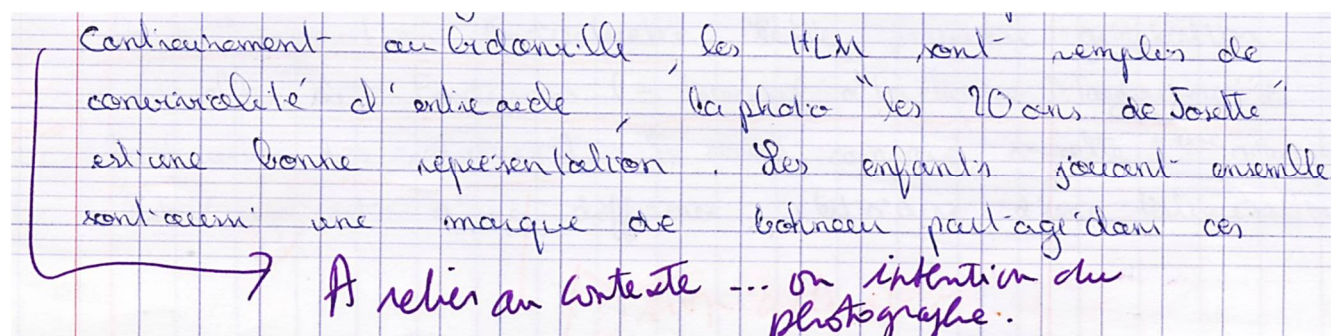 Contrairement au bidonville, les HLM sont remplis de
convivialité d'entraide, la photo "les 20 ans de Josette"
est une bonne représentation. Les enfants jouant ensemble
sont aussi une marque de bohneur partagé dans ces
A relier au contexte ... ou intention du
photographe.